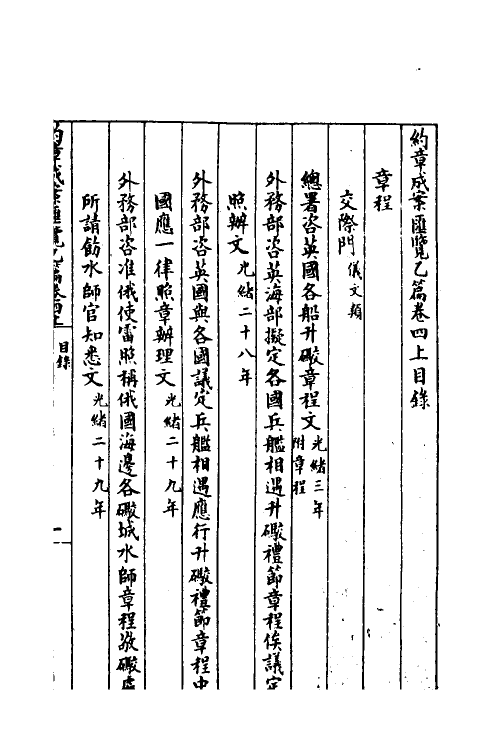 約章成案匯覽乙篇卷四上目錄
章程
交際門 儀文類
總署咨英國各船升礮章程文 光緒三年 附章程
外務部咨英海部擬定各國兵艦相遇升礮禮節章程俟議定
照辦文 光緒二十八年
外務部咨英國與各國議定兵艦相遇應行升礮禮節章程中
國應一律照章辦理文 光緒二十九年
外務部咨准俄使雷照稱俄國海邊各礮城水師章程放礮處
所請飭水師官知悉文 光緒二十九年
約章成案匯覽乙篇卷四上
目錄
一